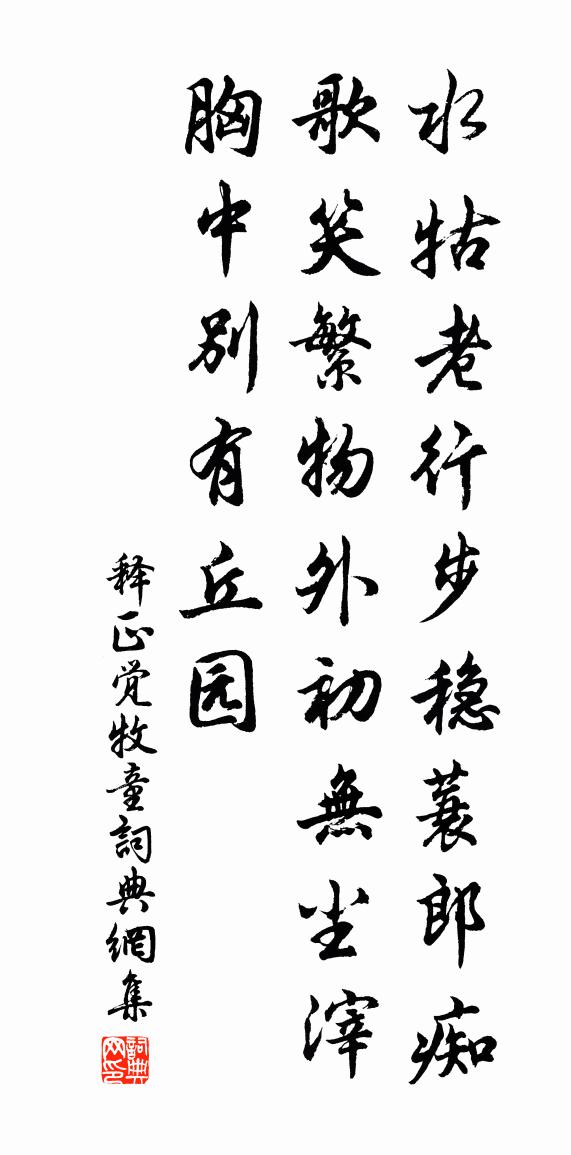 水牯老行步穩蓑郎痴
歌笑繁物外初無尘滓
胸中别有丘园
释正觉牧童詞典網集
詞典网印